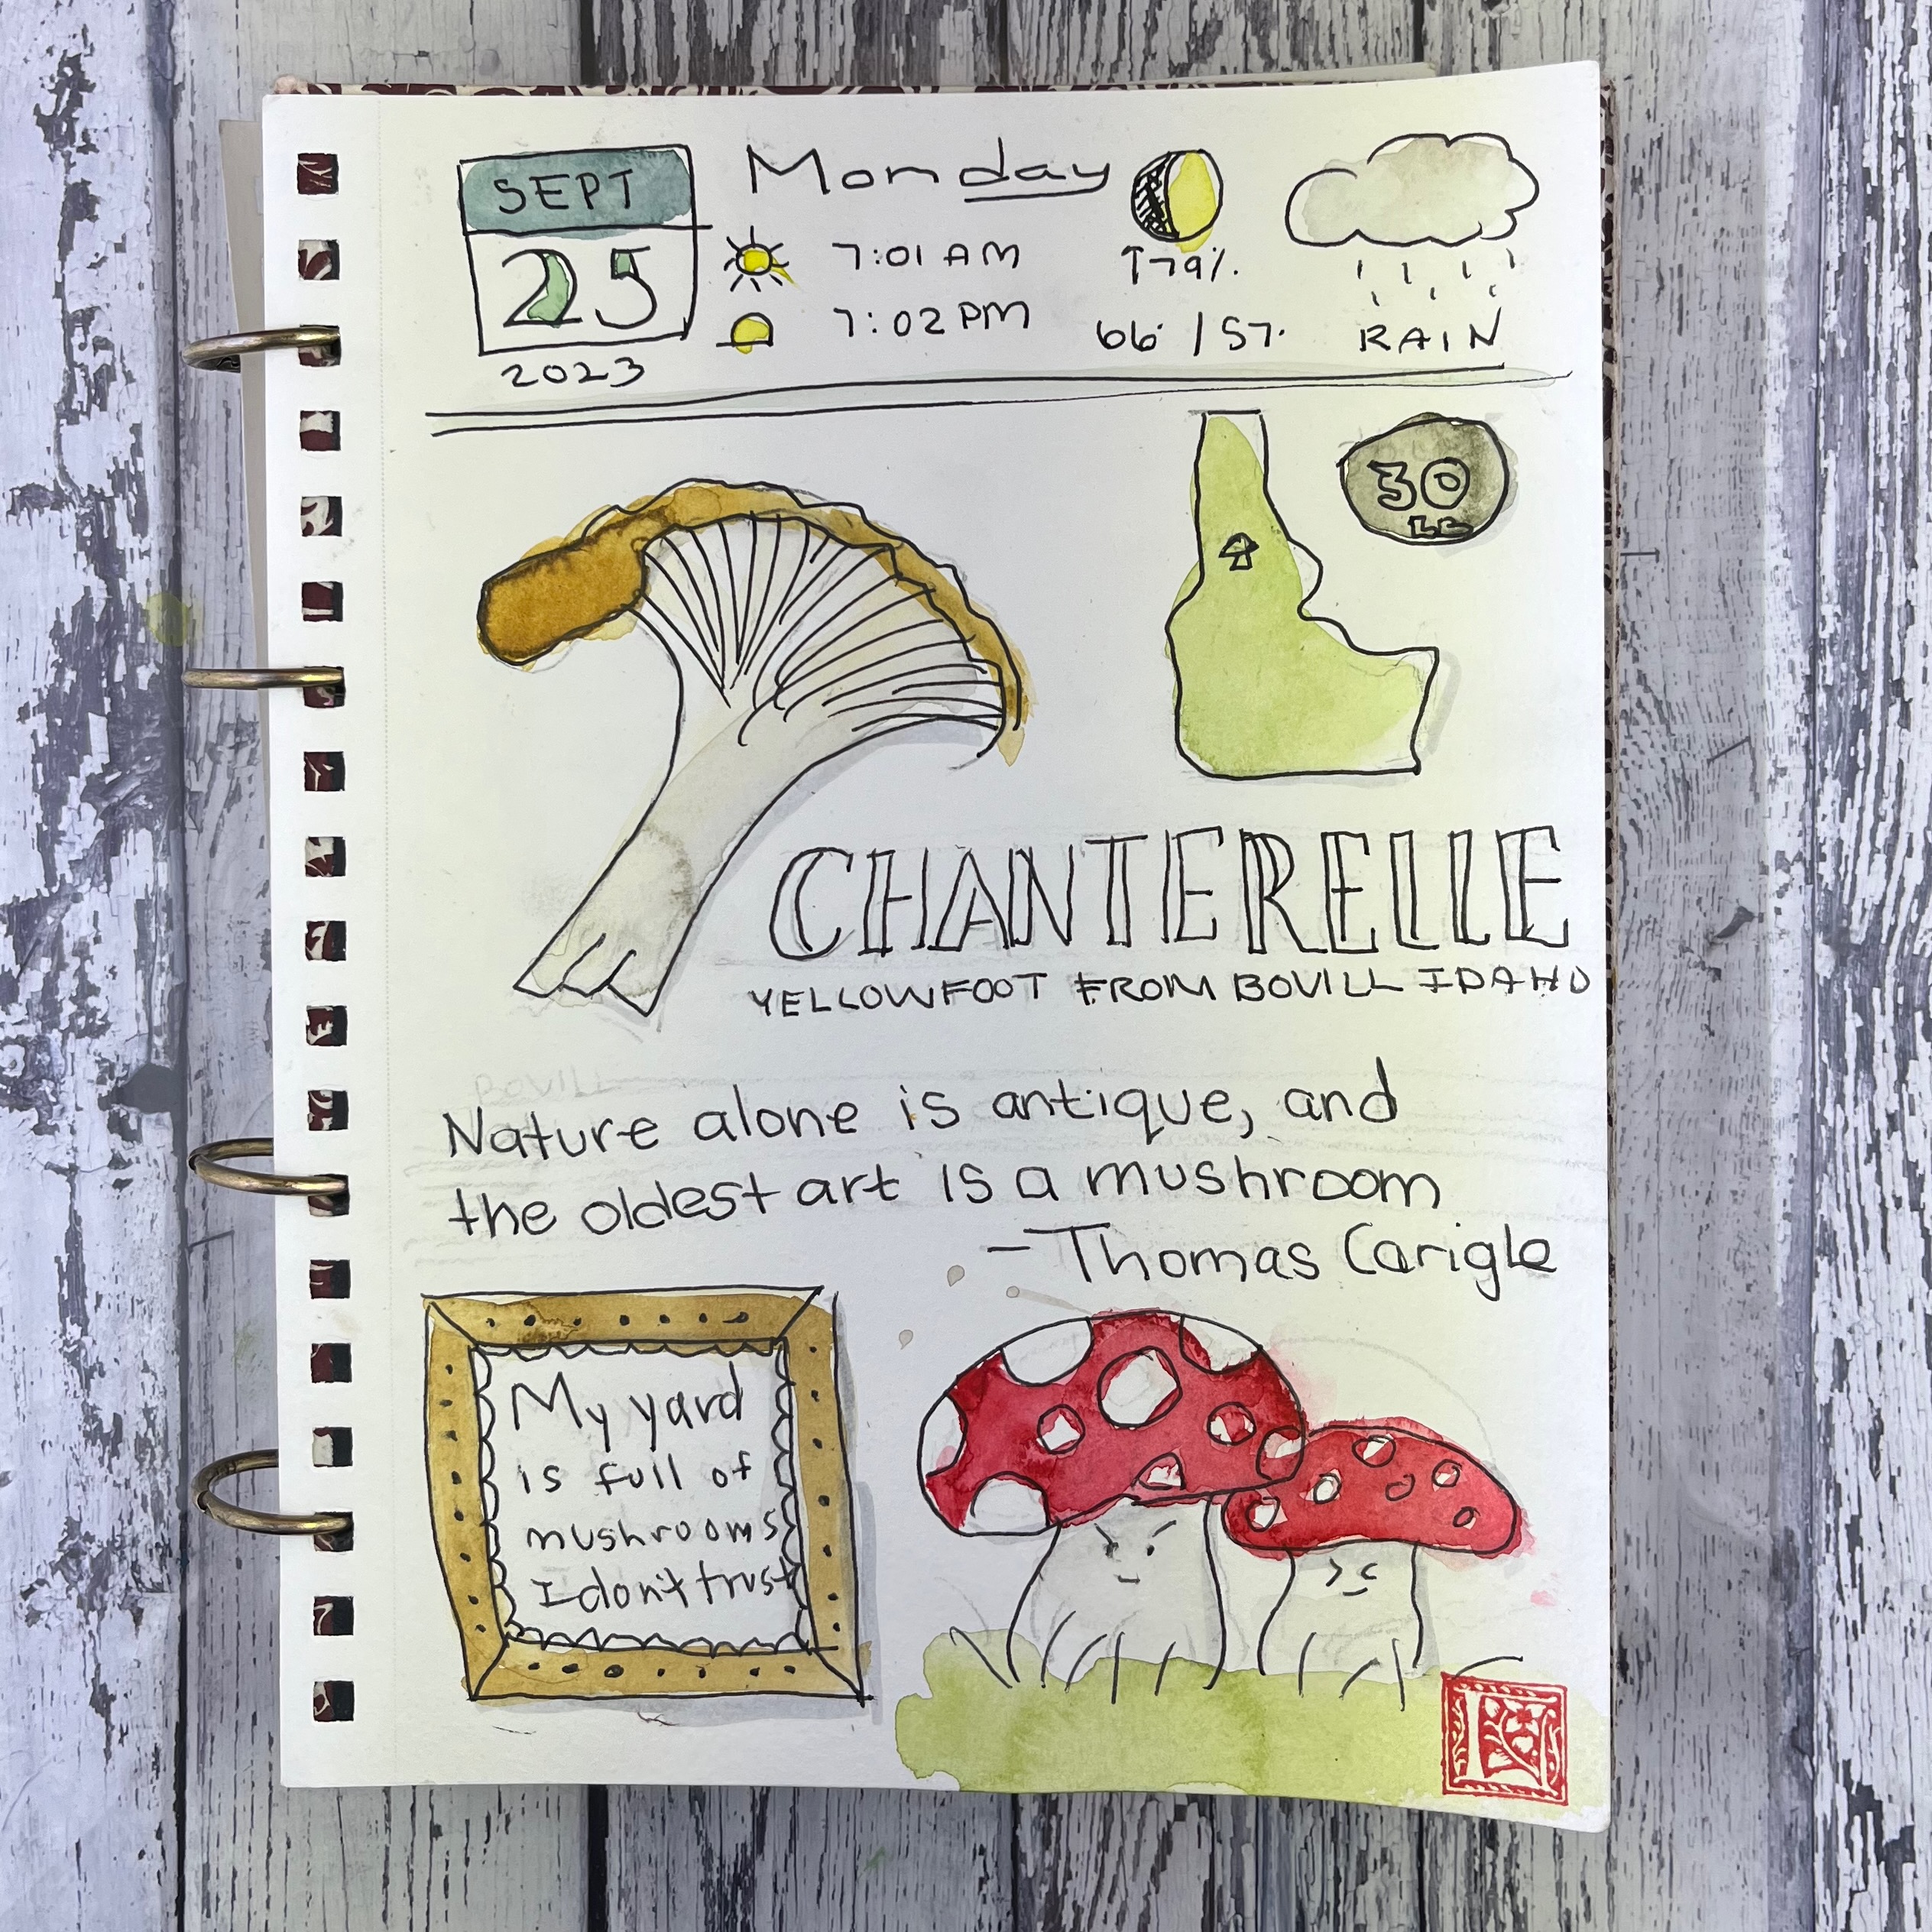 SEPT
25
2023
Monday
7:01 AM
7:02 PM
↑79%.
66° / 57°
RAIN
30
LB
CHANTERELLE
YELLOWFOOT FROM BOVILL IDAHO
BOVILL
Nature alone is antique, and
the oldest art is a mushroom
- Thomas Carigle
My yard
is full of
mushrooms
I don't trust